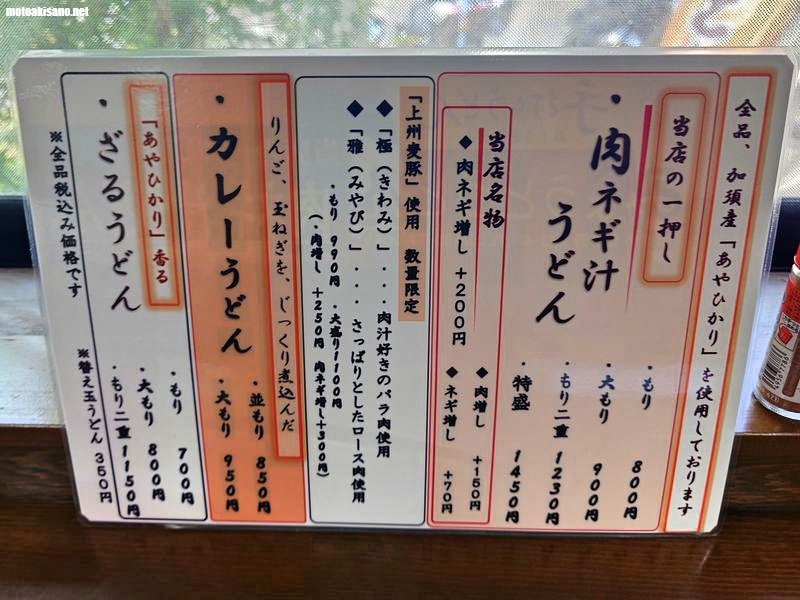 motoakisano.net
全品、加須産「あやひかり」を使用しております
当店の一押し
・肉ネギ汁
うどん
・もり 800円
・大もり 900円
・もり二重 1230円
・特盛 1450円
当店名物
◆肉ネギ増し +200円
◆肉増し +150円
◆ネギ増し +70円
「上州麦豚」使用 数量限定
◆「極(きわみ)」・・・肉汁好きのバラ肉使用
◆「雅(みやび)」・・・さっぱりとしたロース肉使用
・もり 990円 ・大盛り1100円
(・肉増し +250円 肉ネギ増し+300円)
りんご、玉ねぎを、じっくり煮込んだ
・カレーうどん
・並もり 850円
・大もり 950円
「あやひかり」香る
・ざるうどん
・もり 700円
・大もり 800円
・もり二重 1150円
※全品税込み価格です
※替え玉うどん 350円